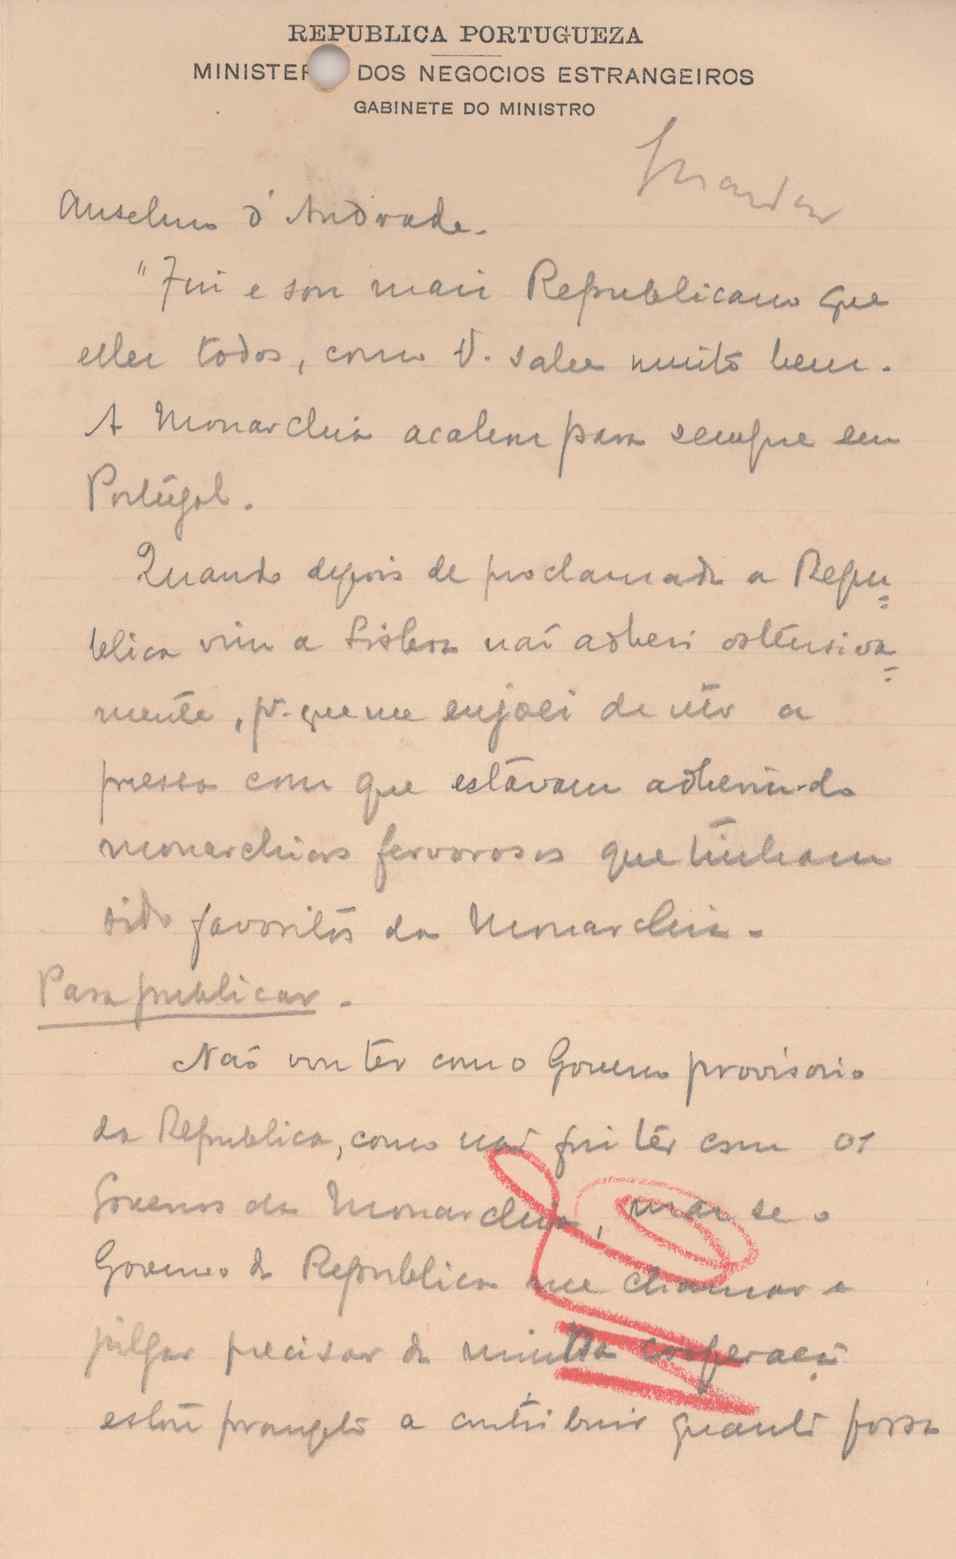 REPUBLICA PORTUGUEZA
MINISTER DOS NEGOCIOS ESTRANGEIROS
GABINETE DO MINISTRO
Guardar
Anselmo d'Andrade.
"Fui e sou mais Republicano que
elles todos, como V. sabe muito bem.
A Monarchia acabou para sempre em
Portugal.
Quando depois de proclamada a Repu=
blica vim a Lisboa não adheri ostensiva=
mente, pr. que me enjoei de vêr a
pressa com que estavam adherindo
monarchicos fervorosos que tinham
sido favoritos da Monarchia.
Para publicar.
Não vou ter com o Governo provisorio
da Republica, como não fui ter com os
Governos da Monarchia, mas se o
Governo da Republica me chamar e
julgar precisar da minha cooperação
estou prompto a contribuir quanto possa